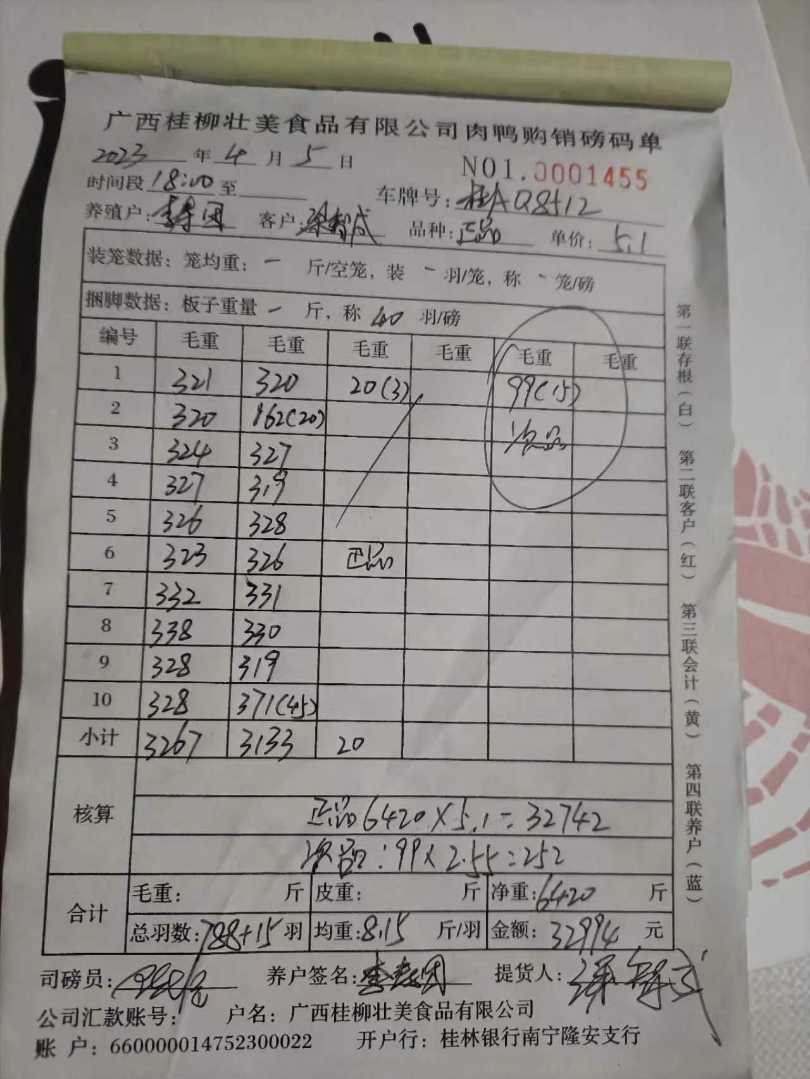 广西桂柳壮美食品有限公司肉鸭购销磅码单
2023 年 4 月 5 日 NO1.0001455
时间段 18:00 至 车牌号: 桂A Q8512
养殖户: 客户: 品种: 正品 单价: 5.1
装笼数据: 笼均重: 一 斤/空笼, 装 一 羽/笼, 称 一 笼/磅
捆脚数据: 板子重量 一 斤, 称 40 羽/磅
编号 毛重 毛重 毛重 毛重 毛重 毛重
1 321 320 20(3) 99(15)
2 320 162(20) 次品
3 324 327
4 327 319
5 326 328
6 323 326 正品
7 332 331
8 338 330
9 328 319
10 328 371(45)
小计 3267 3133 20
核算
正品6420×5.1=32742
次品:99×2.55=252
合计
毛重: 斤 皮重: 斤 净重:6420 斤
总羽数:788+15羽 均重:8.15 斤/羽 金额: 32994 元
司磅员: 养户签名: 提货人:
公司汇款账号: 户名: 广西桂柳壮美食品有限公司
账 户: 660000014752300022 开户行: 桂林银行南宁隆安支行
第一联存根(白) 第二联客户(红) 第三联会计(黄) 第四联养户(蓝)